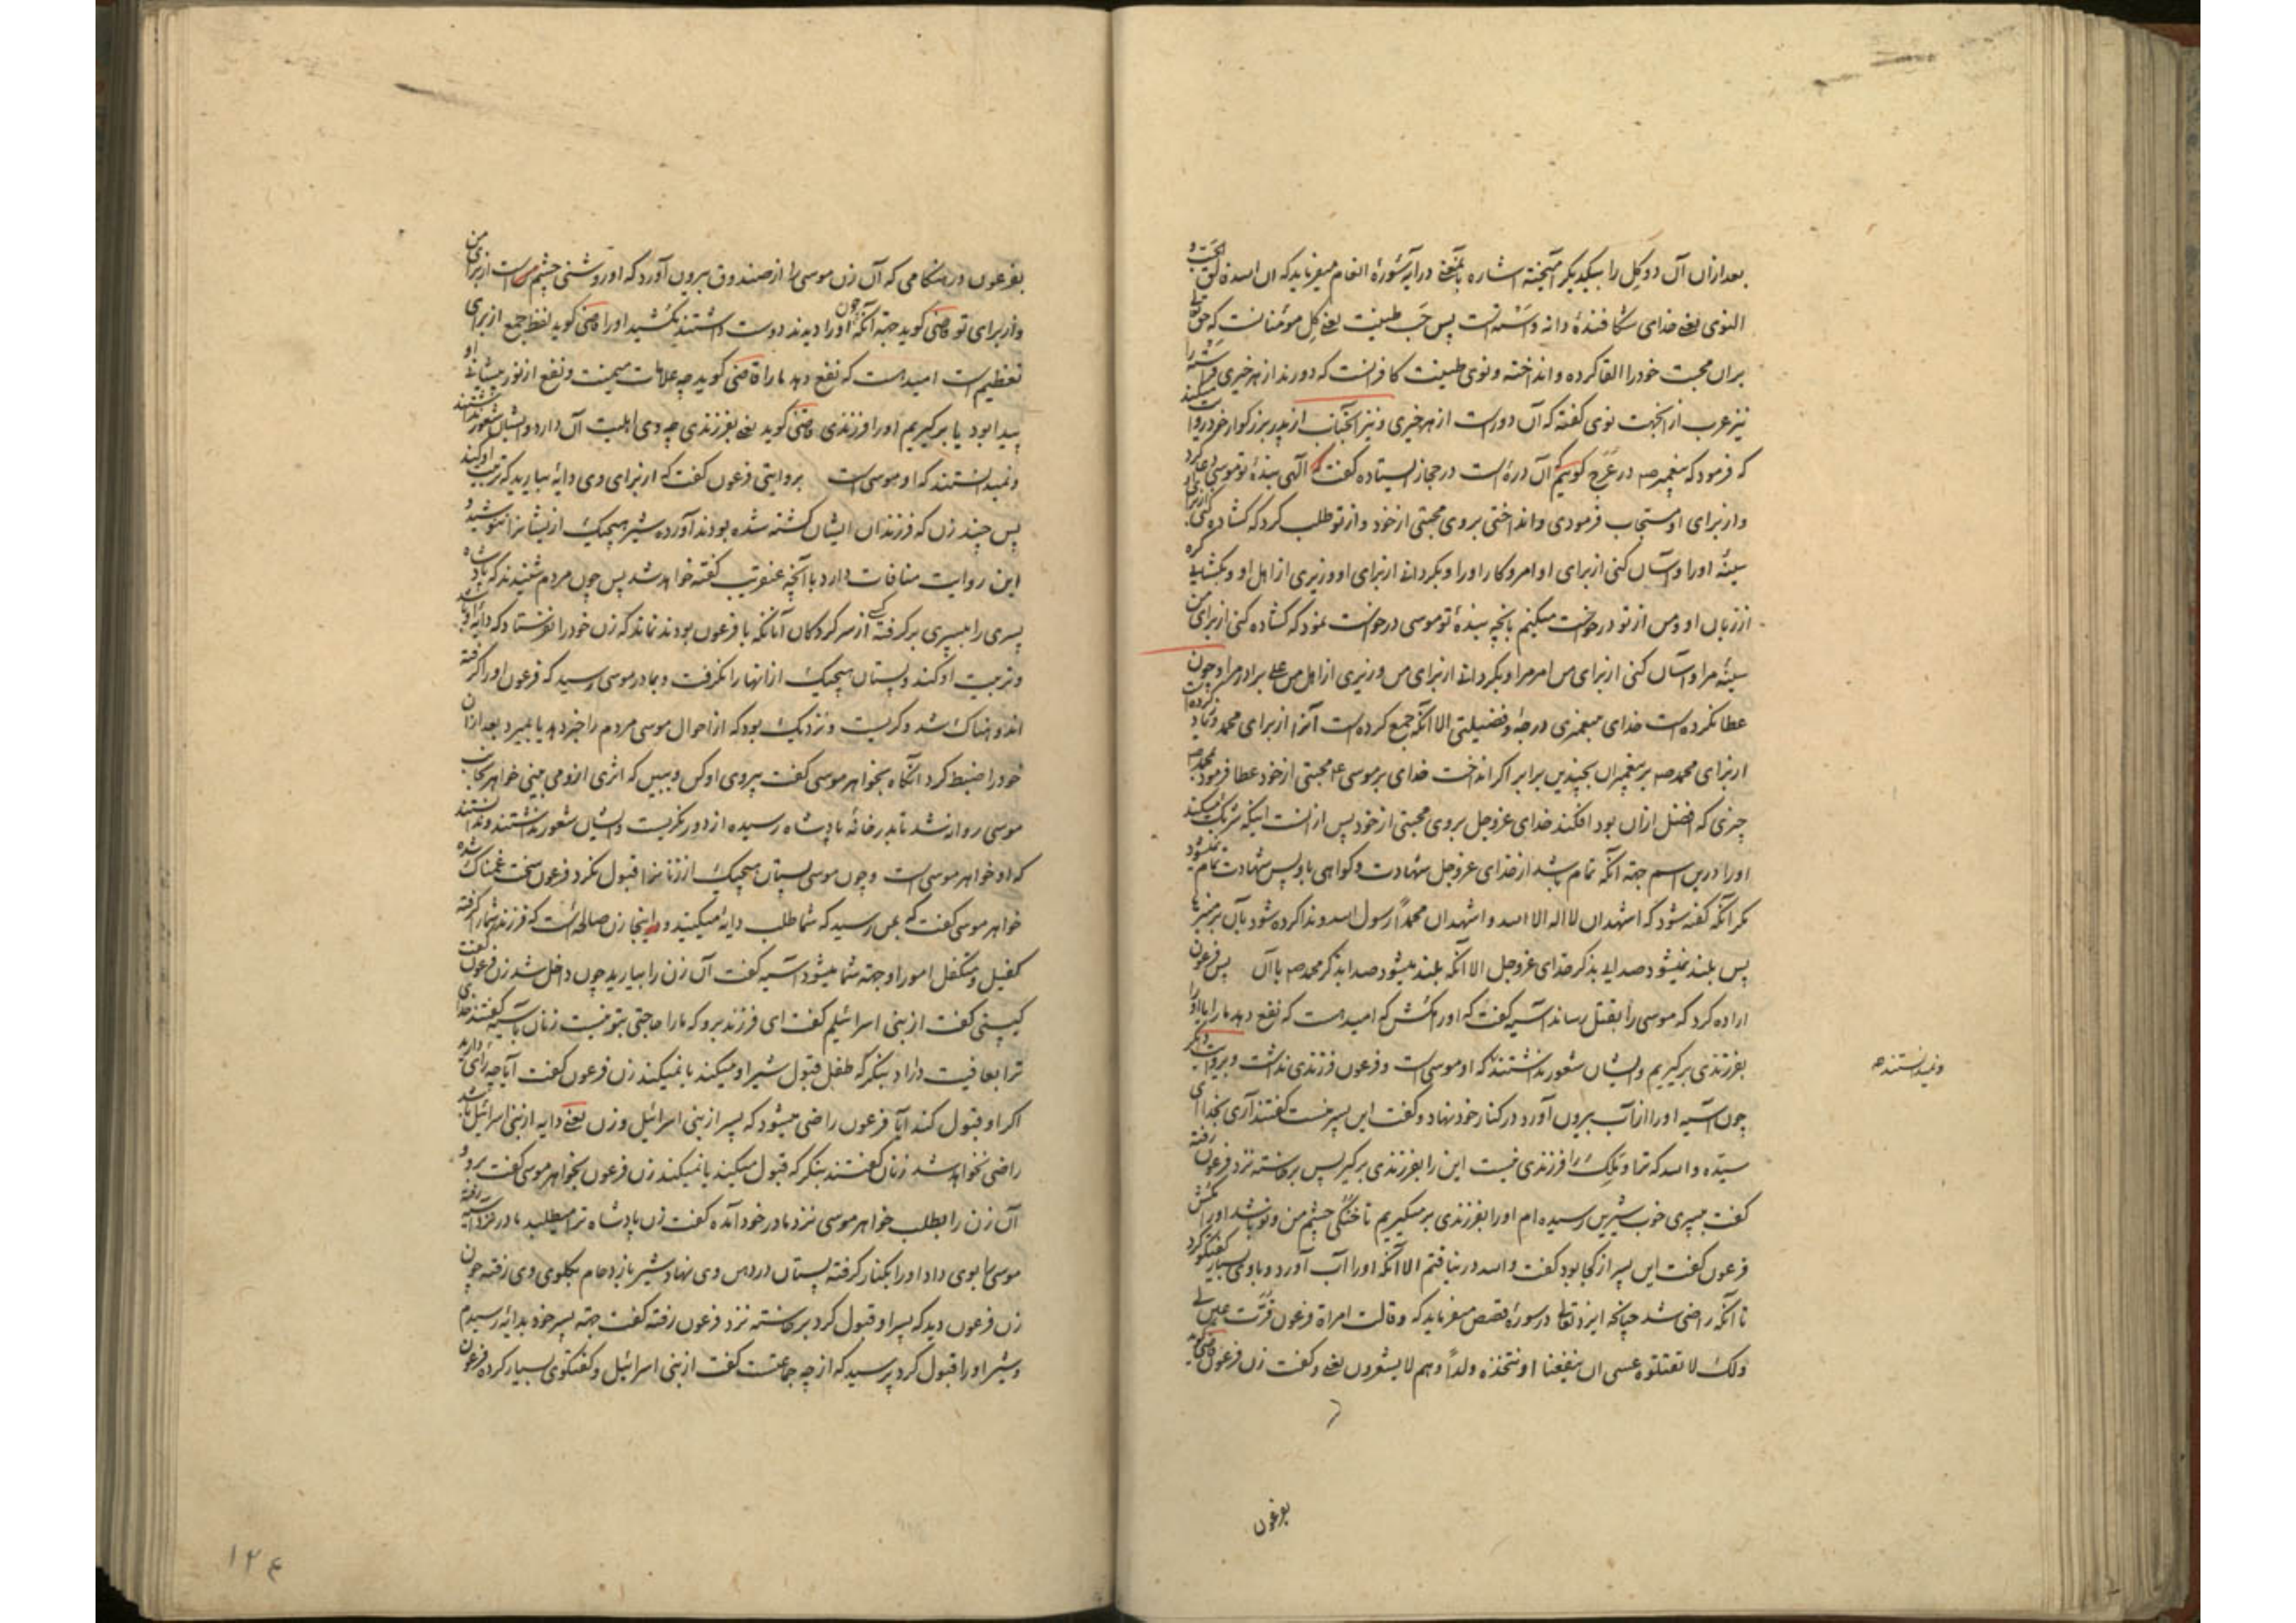 بعد ازان آن دو کل را بیکدیکر آمیخته اشاره باینمعنی در آیه سورهٔ انعام میفرماید که ان الله فالق الحب و
النوی یعنی خدای شکافندهٔ دانه و استه است پس حب طینت یعنی کل مومنانست که حق تعالی
بران محبت خود را القا کرده و انداخته و نوی طینت کافرانست که دورند از هر خیری
نیز عرب از انجهت نوی گفته که آن دورست از هر خیری و نیز آنجناب از پدر بزرکوار خود روایت میکند
که فرمود که پیغمبر صه در عرج کوییم آن دره است در حجاز ایستاده گفت که الهی بندهٔ تو موسی دعا کرد
و از برای او مستجاب فرمودی و انداختی بروی محبتی از خود و از تو طلب کرد که کشاده کنی از برای او
سینهٔ او را و آسان کنی از برای او امر و کار او را و بکردانی از برای او وزیری از اهل او و بکشایی کره
از زبان او و من از تو درخواست میکنیم بآنچه بندهٔ تو موسی درخواست نمود که کشاده کنی از برای من
سینهٔ مرا و آسان کنی از برای من امر مرا و بکردانی از برای من وزیری از اهل من علی برادر مرا و چون
عطا نکرده است خدای پیغمبری درجهٔ و فضیلتی الا آنکه جمع کرده است آنرا از برای محمد و زیاد کرده
از برای محمد صه بر پیغمبران بچندین برابر اکر انداخت خدای بر موسی ع محبتی از خود عطا فرمود بمحمد صه
چیزی که افضل ازان بود افکند خدای عزوجل بروی محبتی از خود پس ازانست اینکه شریک میکند
او را درین اسم جهة آنکه تمام باشد از خدای عزوجل شهادت و کواهی باو پس شهادت تمام نمیشود
مکر آنکه گفته شود که اشهد ان لا اله الا الله و اشهد ان محمداً رسول الله و ندا کرده شود بآن بر منبرها
پس بلند نمیشود صدایی بذکر خدای عزوجل الا آنکه بلند میشود صدا بذکر محمد صه با آن پس فرعون
اراده کرد که موسی را بقتل رساند آسیه گفت که او را مکش که امید است که نفع دهد ما را یا او را
بفرزندی برکیریم و ایشان شعور نداشتند که او موسی است و فرعون فرزندی نداشت و بروایت دیکر
ونمیدانستند صه
چون آسیه او را از آب بیرون آورد در کنار خود نهاد و گفت این پسر منست گفتند آری بخدا ای
سیده والله که ترا و ملک را فرزندی نیست این را بفرزندی برکیر پس برخاسته نزد فرعون رفته
گفت بپسری خوب شیرین رسیده ام او را بفرزندی برمیکیریم تا خنکی چشم من و تو باشد او را مکش
فرعون گفت این پسر از کجا بود گفت والله در نیافتم الا آنکه او را آب آورد و با وی بسیار گفتگو کرد
تا آنکه راضی شد چنانکه ایزد تعالی در سورهٔ قصص میفرماید که و قالت امراة فرعون قرت عین لی
ولک لا تقتلوه عسی ان ینفعنا او نتخذه ولداً و هم لا یشعرون یعنی و گفت زن فرعون
بفرعون
بفرعون در هنکامی که آن زن موسی را از صندوق بیرون آورد که او روشنی چشم من است از برای من
و از برای تو قاضی کوید جهة آنکه چون او را دیدند دوست داشتند مکشید او را قاضی کوید لفظ جمع از برای
تعظیم است امید است که نفع دهد ما را قاضی کوید چه علامات میمنت و نفع از نور پیشانی او
پیدا بود یا برکیریم او را فرزندی قاضی کوید یعنی بفرزندی چه وی اهلیت آن دارد و ایشان شعور نداشتند
و نمیدانستند که او موسی است بروایتی فرعون گفت که از برای وی دایه بیارید که تربیت او کند
پس چند زن که فرزندان ایشان کشته شده بودند آورده شیر هیچیک ازیشان را ننوشید و
این روایت منافات دارد با آنچه عنقریب گفته خواهد شد پس چون مردم شنیدند که پادشاه
پسری را بپسری برکرفته کسی از سرکردکان آنانکه با فرعون بودند نماند که زن خود را نفرستاد که دایهٔ او باشد
و تربیت او کند و پستان هیچیک از انها را نکرفت و بمادر موسی رسید که فرعون او را کرفته
اندوهناک شد و کریست و نزدیک بود که از احوال موسی مردم را خبر دهد یا بمیرد بعد ازان
خود را ضبط کرد آنکاه بخواهر موسی گفت پیروی او کن و ببین که اثری ازو می بینی خواهر بجانب
موسی روانه شد تا بدر خانهٔ پادشاه رسیده از دور نکریست و ایشان شعور نداشتند و ندانستند
که او خواهر موسی است و چون موسی پستان هیچیک از زنان را قبول نکرد فرعون سخت غمناک شده
خواهر موسی گفت که بمن رسید که شما طلب دایه میکنید و در اینجا زن صالحه است که فرزند شما را کرفته
کفیل و متکفل امور او جهة شما میشود آسیه گفت آن زن را بیارید چون داخل شد زن فرعون گفت
کیستی گفت از بنی اسرائیلم گفت ای فرزند برو که ما را حاجتی بتو نیست زنان بآسیه گفتند خدای
ترا بعافیت دارد بنکر که طفل قبول شیر او میکند یا نمیکند زن فرعون گفت آیا چه رای دارید
اکر او قبول کند آیا فرعون راضی میشود که پسر از بنی اسرائیل و زن یعنی دایه از بنی اسرائیل باشد
راضی نخواهد شد زنان گفتند بنکر که قبول میکند یا نمیکند زن فرعون بخواهر موسی گفت برو و
آن زن را بطلب خواهر موسی نزد مادر خود آمده گفت زن پادشاه ترا میطلبد مادر نزد آسیه رفته
موسی را بوی داد او را بکنار کرفته پستان در دهن وی نهاد شیر بازدحام بکلوی وی رفته چون
زن فرعون دید که پسر او قبول کرد برخاسته نزد فرعون رفته گفت جهة پسر خود بدایه رسیدم
و شیر او را قبول کرد پرسید که از چه جماعتست گفت از بنی اسرائیل و گفتگوی بسیار کرده فرعون
۱۲۴